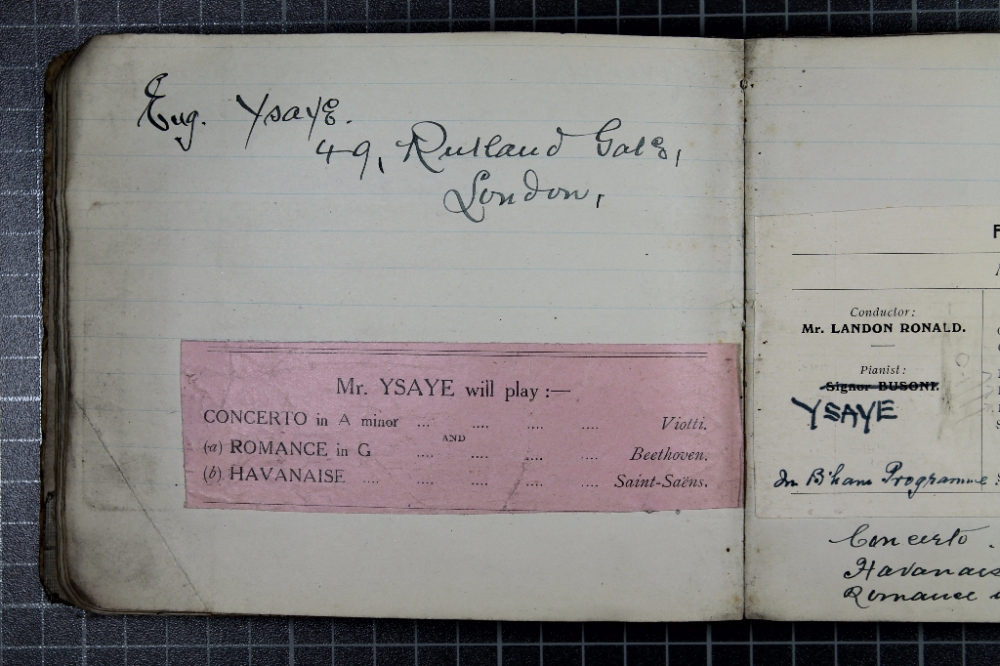 Eug. Ysaÿe.
49, Rutland Gate,
London,
Mr. YSAYE will play :—
CONCERTO in A minor ... .... .... .... Viotti.
AND
(a) ROMANCE in G .... .... .... .... Beethoven.
(b) HAVANAISE .... .... .... .... .... Saint-Saëns.
F
Conductor:
Mr. LANDON RONALD.
Pianist:
Signor BUSONI.
YSAYE
In B'ham Programme
Concerto
Havanais
Romance